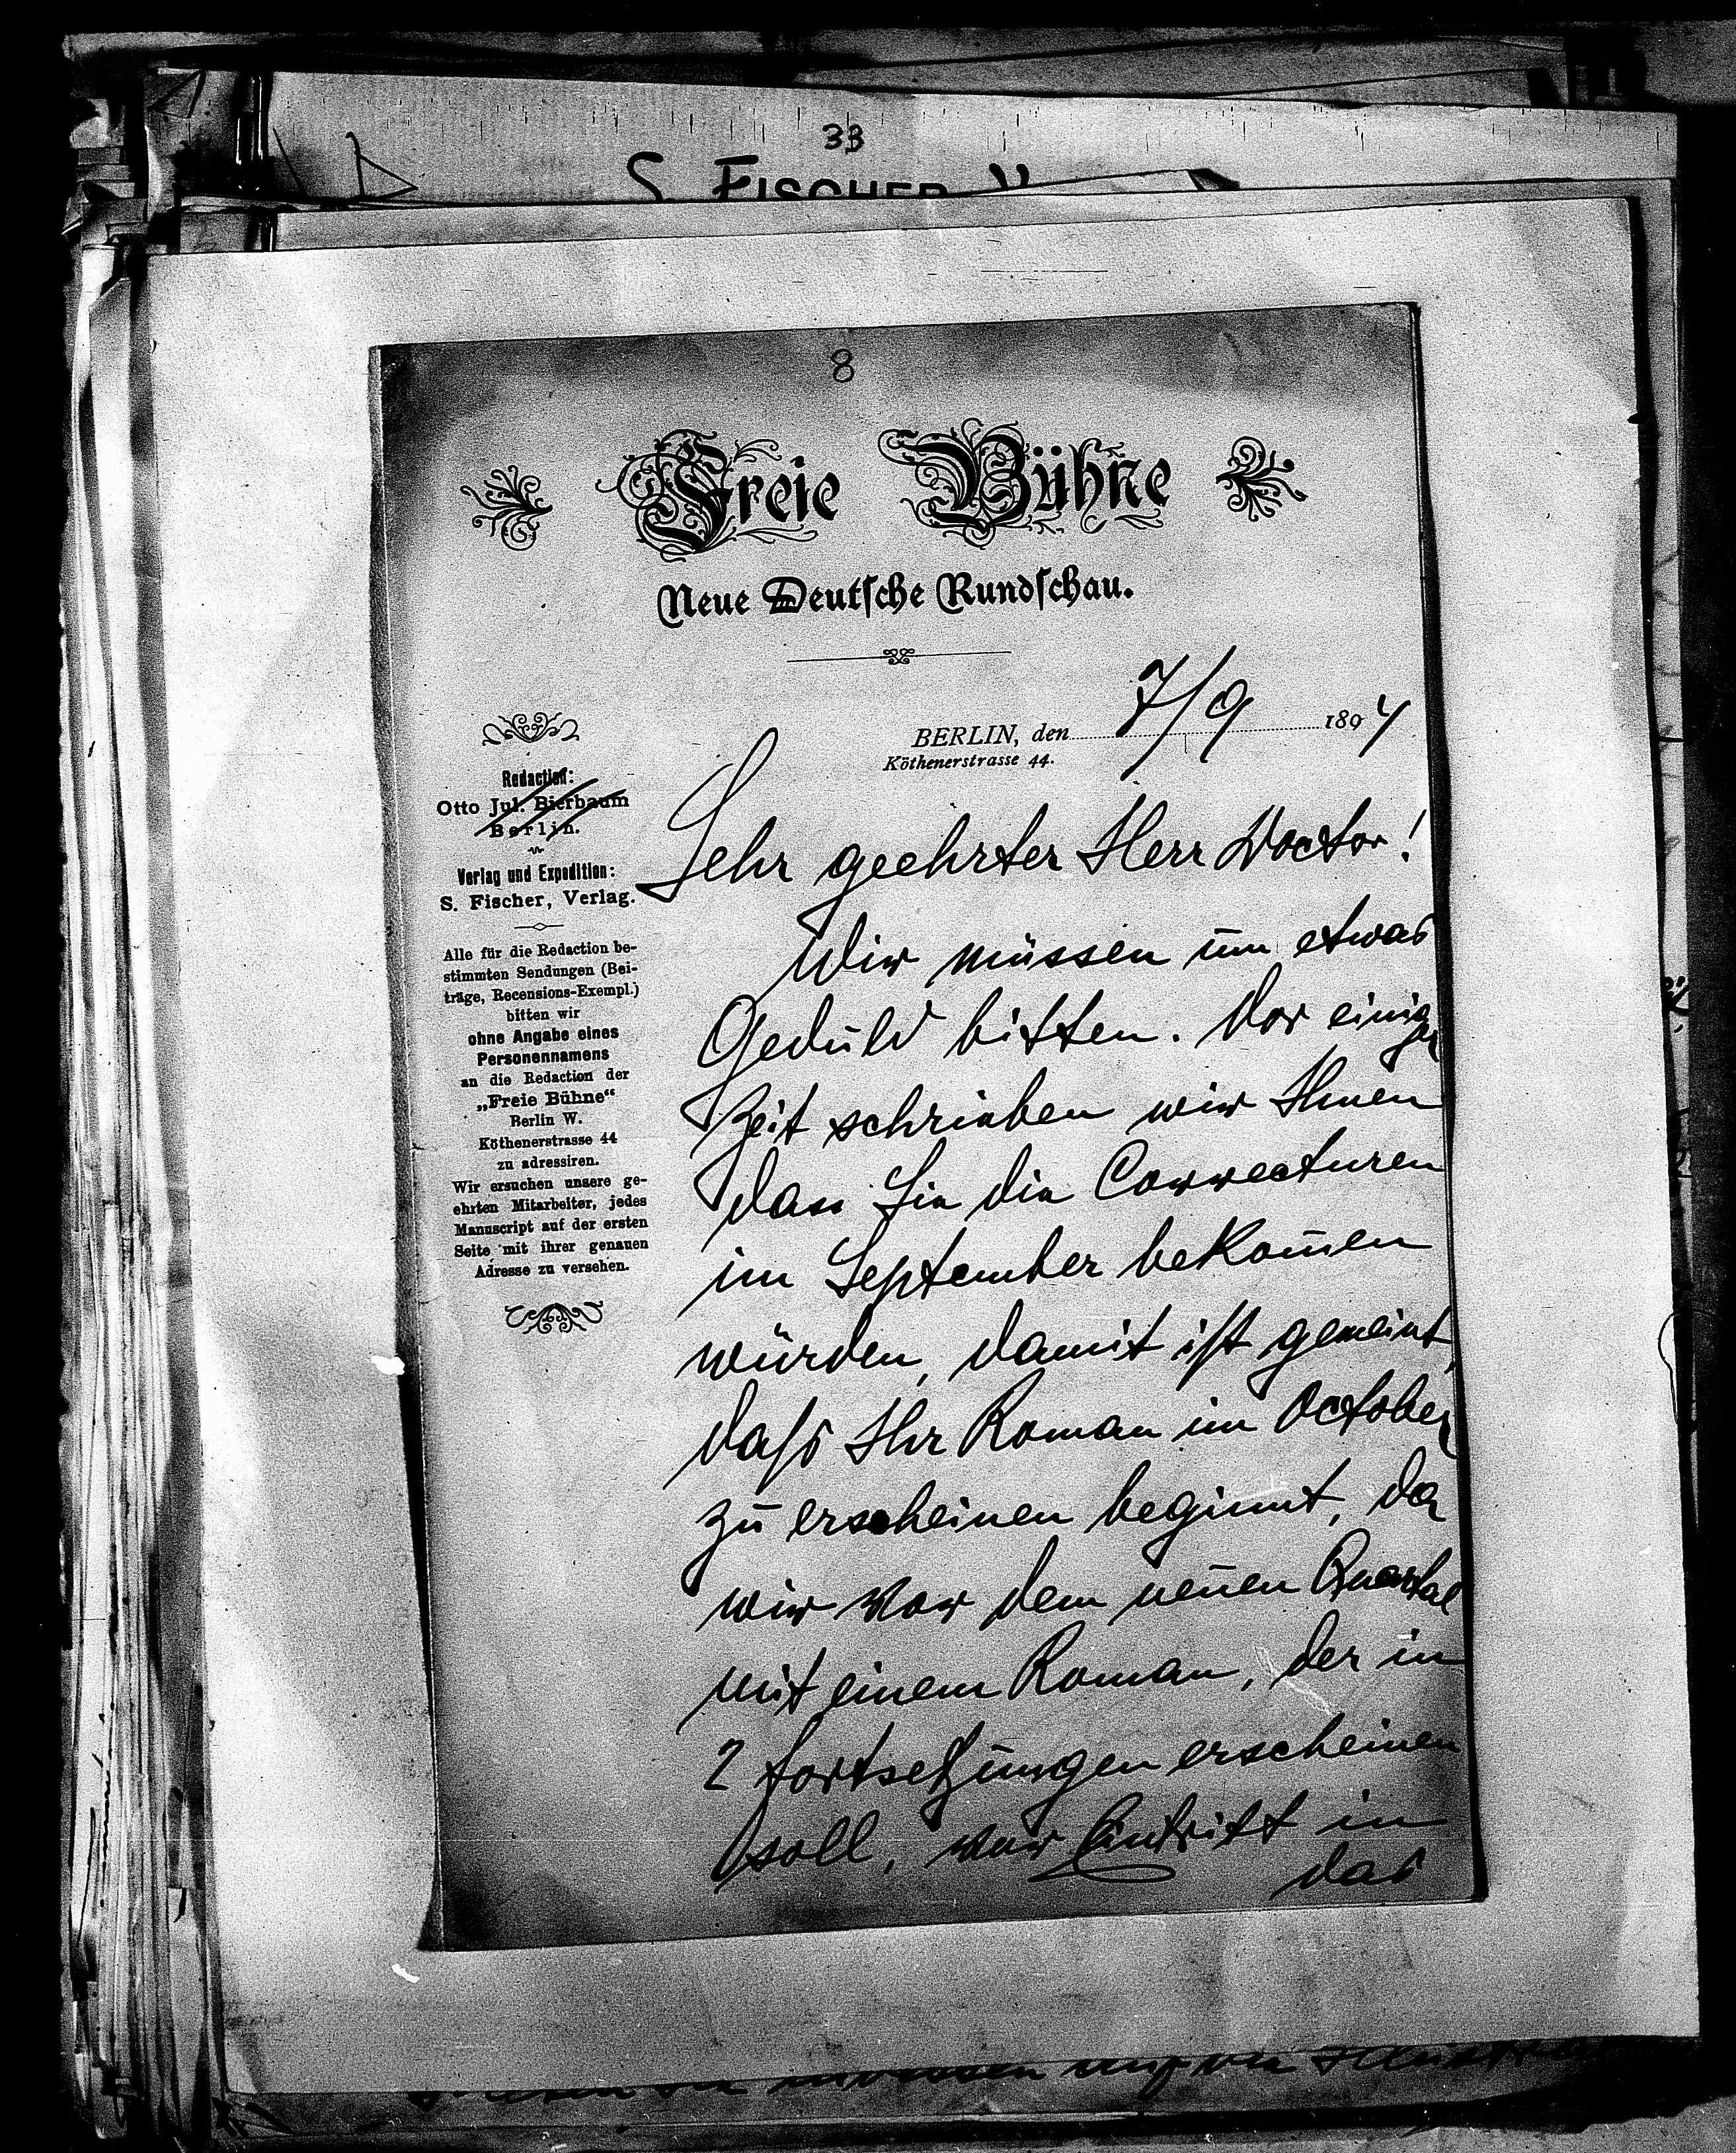 33
S. FISCHER V
8
Freie Bühne
Neue Deutsche Rundschau.
BERLIN, den 7/9 1894
Köthenerstrasse 44.
Redaction:
Otto Jul. Bierbaum
Berlin.
Verlag und Expedition:
S. Fischer, Verlag.
Alle für die Redaction be-
stimmten Sendungen (Bei-
träge, Recensions-Exempl.)
bitten wir
ohne Angabe eines
Personennamens
an die Redaction der
„Freie Bühne“
Berlin W.
Köthenerstrasse 44
zu adressiren.
Wir ersuchen unsere ge-
ehrten Mitarbeiter, jedes
Manuscript auf der ersten
Seite mit ihrer genauen
Adresse zu versehen.
Sehr geehrter Herr Doctor!
Wir müssen um etwas
Geduld bitten. Vor einiger
Zeit schrieben wir Ihnen
dass Sie die Correcturen
im September bekom̄en
würden, damit ist gemeint,
daß Ihr Roman im October
zu erscheinen beginnt, da
wir vor dem neuen Quartal
mit einem Roman, der in
2 Fortsetzungen erscheinen
soll, vor Eintritt in
das